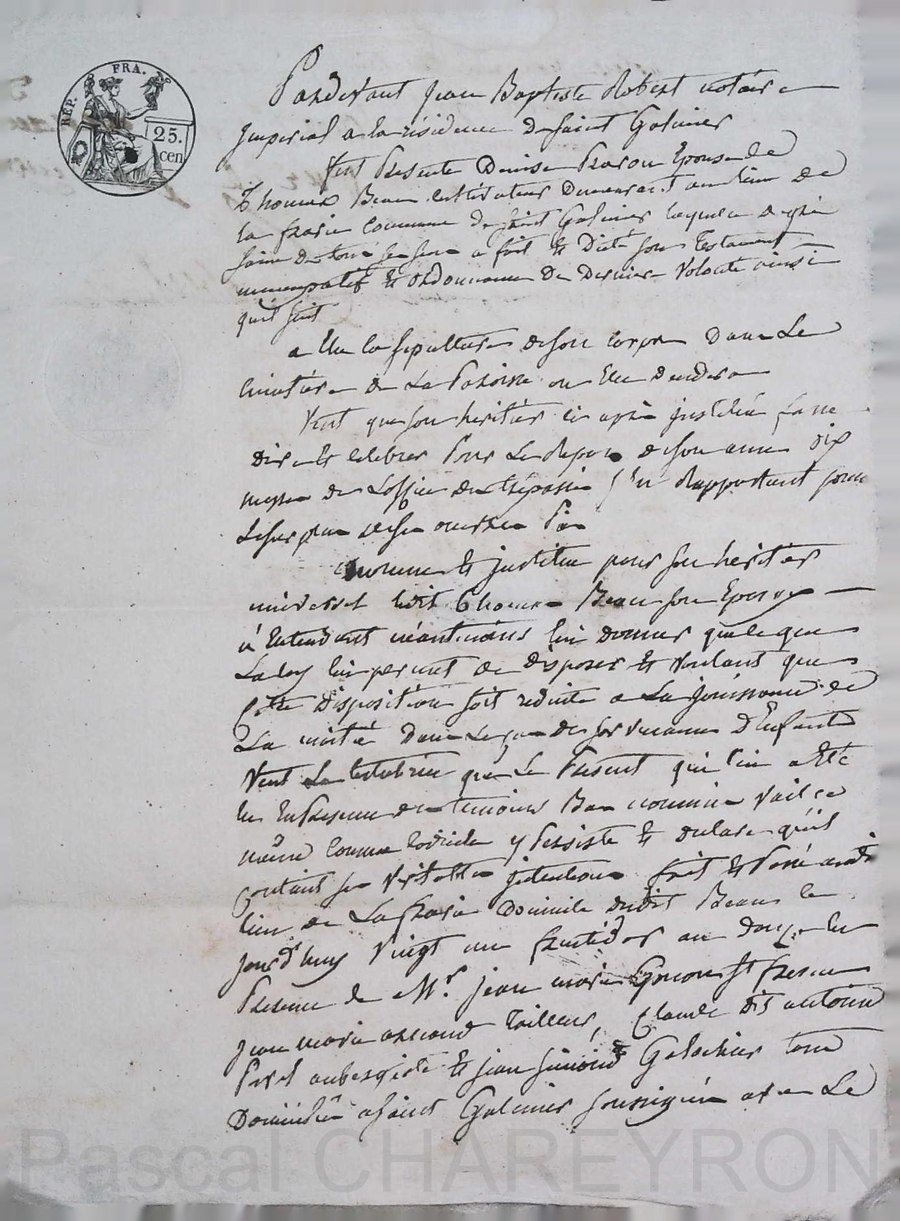 REP. FRA.
25.
cen
Pardevant jean Baptiste Robert notaire
Imperial a la résidence de saint Galmier
fut Presente Denise epouse de
Thomas Beau cultivateur Demeurant au lieu de
la commune de saint Galmier laquelle
saine de tous ses sens a fait et Dicté son Testament
nuncupatif et ordonnance de Derniere volonté ainsi
quil suit
a Elu la sepulture de son corps Dans Le
cimetiere de La Paroisse ou Elle
Veut que son heritier ci après justitué fasse
Dire et celebrer Pour Le Repos de son ame Dix
messes de Loffice des trépassés s'en Rapportant pour
Le surplus de ses Pies
nomme et justitue pour son heritier
universel ledit Thomas Beau son Epoux
n'Entendant néantmoins lui donner que ce que
La loy lui permet de disposer et voulant que
Cette disposition soit reduite a La jouissance de
La moitié Dans Le cas de survenance D'Enfants
Veut La testatrice que Le Present qui lui a Eté
lu En Presence des temoins Bas nommés vaille
même comme codicile y Persiste et declare qu'il
contient ses veritables jntentions fait et Passé audit
lieu de Domicile dudit Beau le
jourd'huy vingt un fructidor an douze En
Presence de Mr. jean marie
jean marie tailleur, Claude dit antoine
aubergiste et jean Galochier tous
Domiciliés a saint Galmier soussignés avec Le
Pascal CHAREYRON